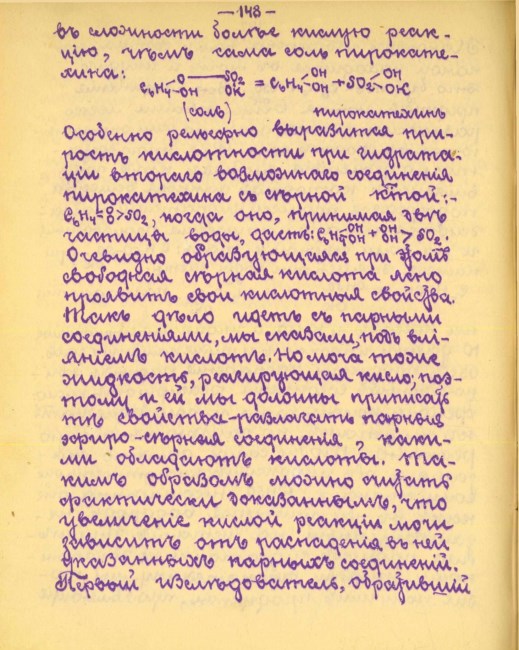 — 148 —
въ сложности болѣе кислую реак-
цію, чѣмъ сама соль пирокате-
хина:
C₆H₄<O OH — SO₂ OK = C₆H₄<OH OH + SO₂<OH OK
(соль) пирокатехинъ
Особенно рельефно выразится при-
ростъ кислотности при гидрата-
ціи второго возможнаго соединенія
пирокатехина съ сѣрной к'той:-
C₆H₄=O>SO₂, когда оно, принимая двѣ
частицы воды, дастъ: C₆H₄OH OH + OH OH > SO₂.
Очевидно образующаяся при этомъ
свободная сѣрная кислота ясно
проявитъ свои кислотныя свойства.
Такъ дѣло идетъ съ парными
соединеніями, мы сказали, подъ влі-
яніемъ кислотъ. Но моча тоже
жидкость, реагирующая кисло, поэ-
тому и ей мы должны приписать
тѣ свойства-разлагать парныя
эфиро-сѣрныя соединенія, каки-
ми обладаютъ кислоты. Та-
кимъ образомъ можно считать
фактически доказаннымъ, что
увеличеніе кислой реакціи мочи
зависитъ отъ распаденія въ ней
указанныхъ парныхъ соединеній.
Первый изслѣдователь, обратившій